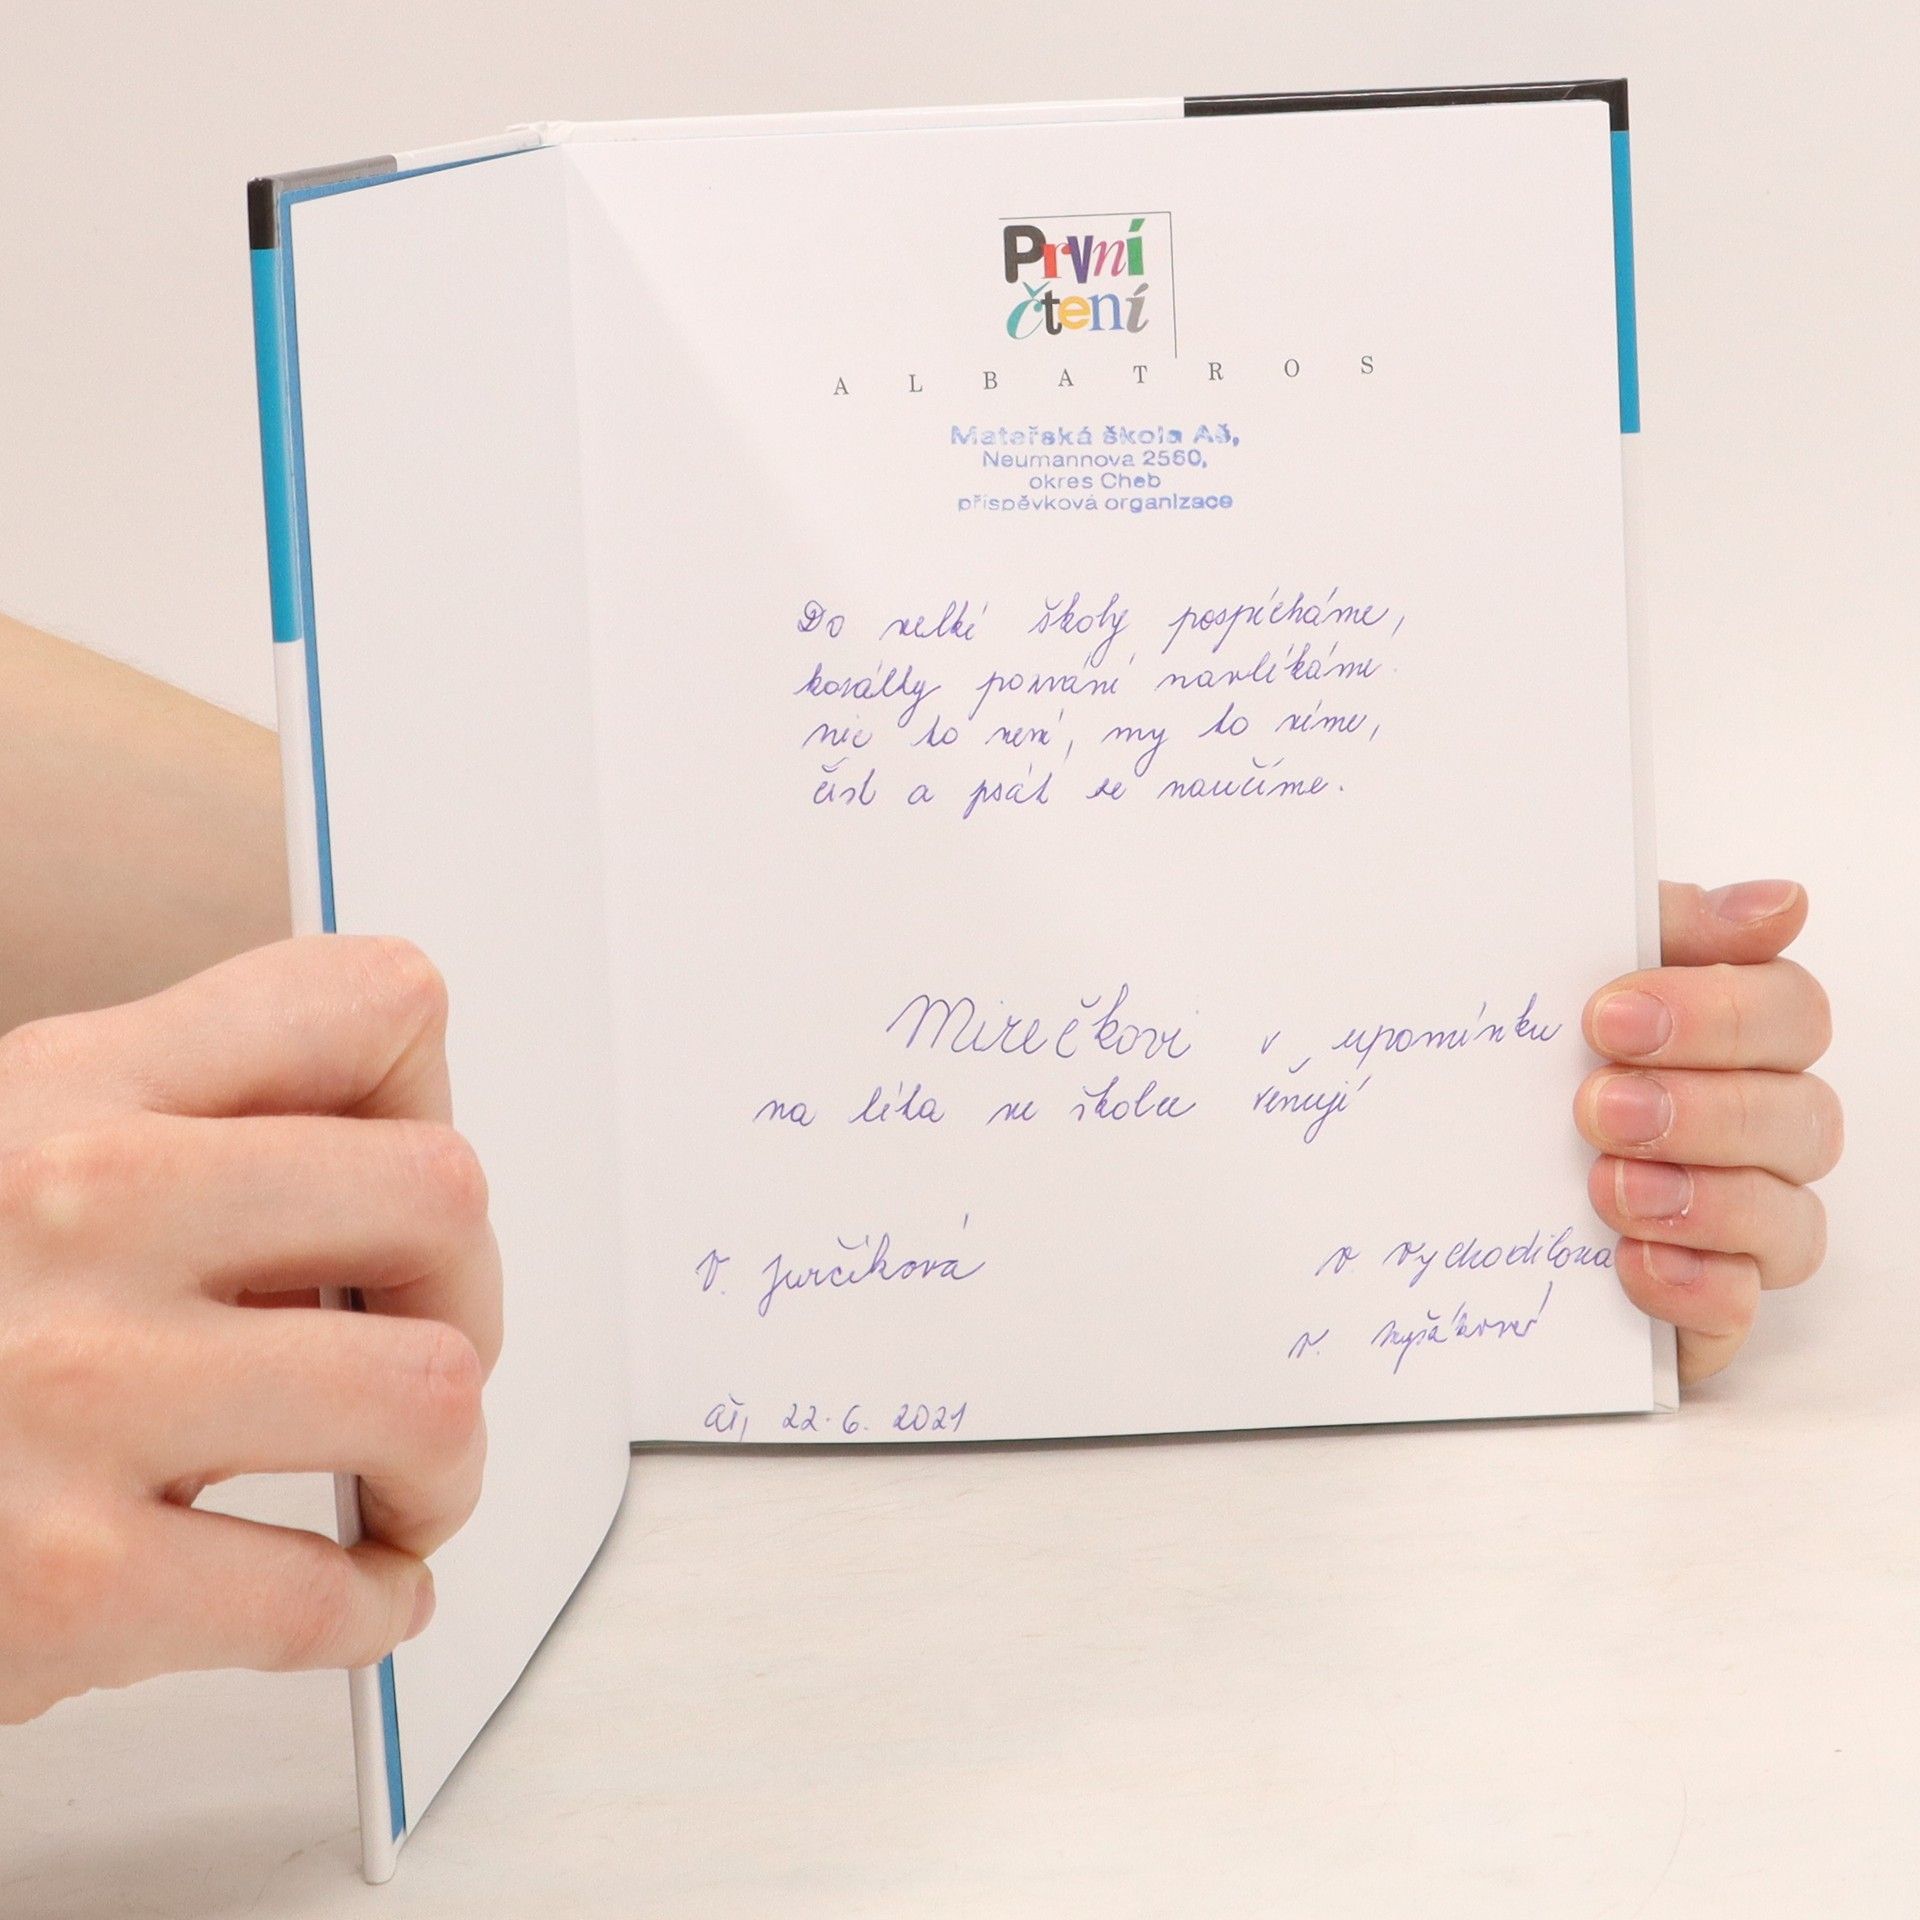 První
čtení
ALBATROS
Mateřská škola Aš,
Neumannova 2560,
okres Cheb
příspěvková organizace
Do velké školy pospícháme,
korálky poznání navlékáme
nic to není, my to víme,
číst a psát se naučíme.
Mirečkovi v upomínku
na léta ve školce věnují
V. Jurčíková
V Vychodilova
V.
Aš, 22.6. 2021